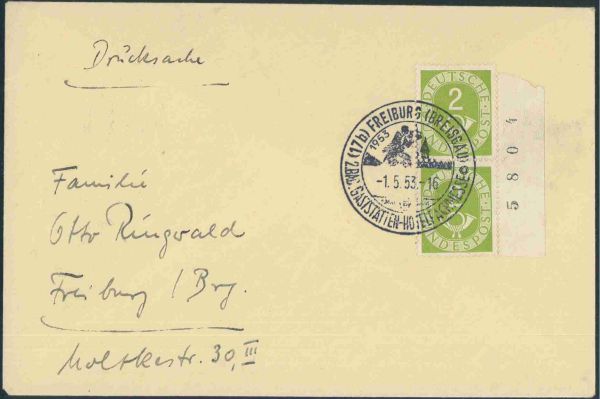 Drucksache
Familie
Otto Ringwald
Freiburg / Brg.
Moltkestr. 30, III
(17b) FREIBURG (BREISGAU)
1953
-1.5.53.-16
GASTSTÄTTEN-HOTEL-FACHMESSE
DEUTSCHE
2
BUNDESPOST
BUNDESPOST
5804